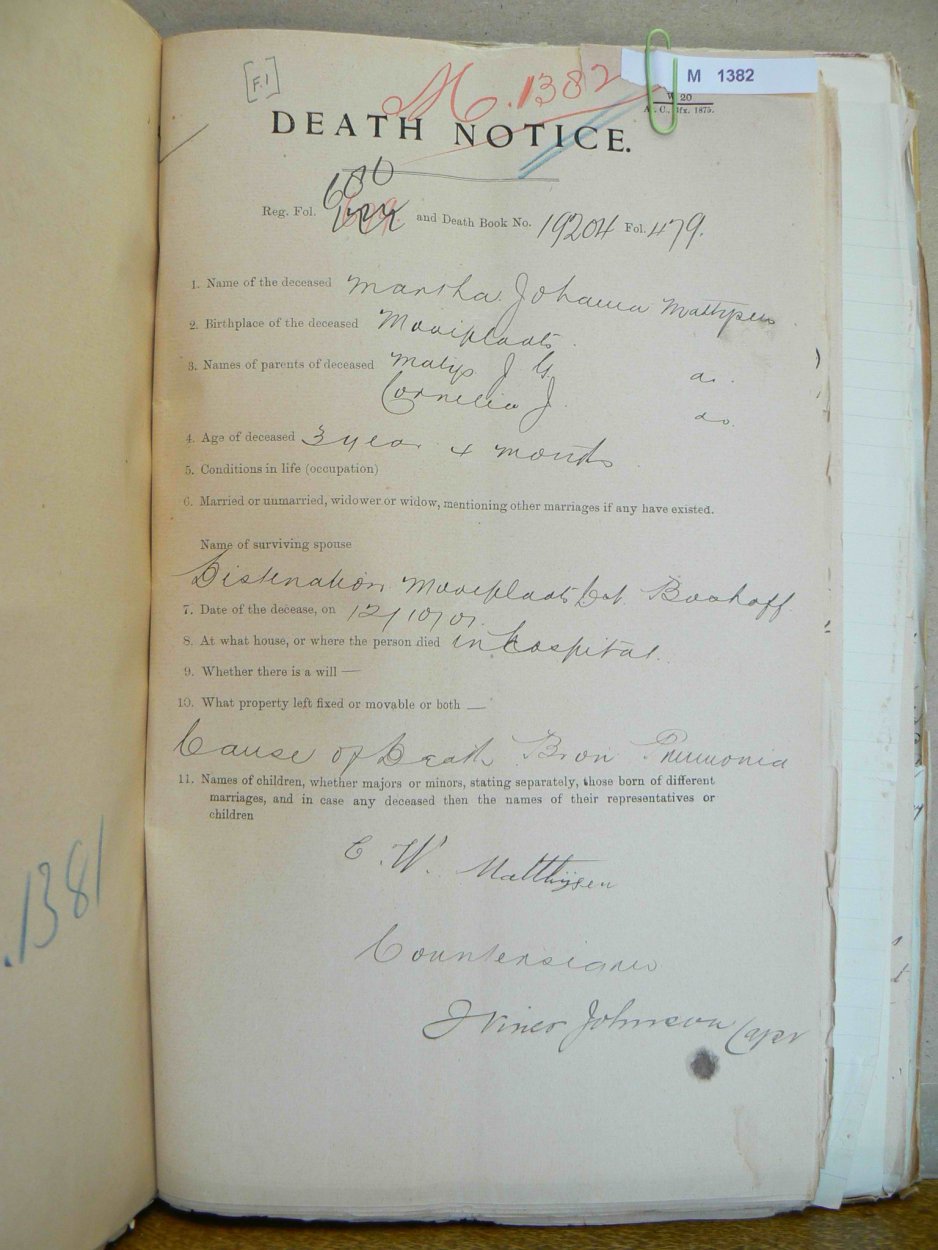 [F.1]
M. 1382
M 1382
W 20
DEATH NOTICE.
Reg. Fol. 680 and Death Book No. 19204 Fol. 479.
1. Name of the deceased Martha Johanna Mattysen
2. Birthplace of the deceased Mooiplaats
3. Names of parents of deceased Matys J G do.
Cornelia J. do.
4. Age of deceased 3 year 4 months
5. Conditions in life (occupation)
6. Married or unmarried, widower or widow, mentioning other marriages if any have existed.
Name of surviving spouse
Distination Mooiplaats Dst Boshoff
7. Date of the decease, on 12/10/01.
8. At what house, or where the person died in Hospital.
9. Whether there is a will —
10. What property left fixed or movable or both —
Cause of Death Bron Pneumonia
11. Names of children, whether majors or minors, stating separately, those born of different
marriages, and in case any deceased then the names of their representatives or
children
C. W. Matthysen
Countersigned
Johnson Capt
.1381